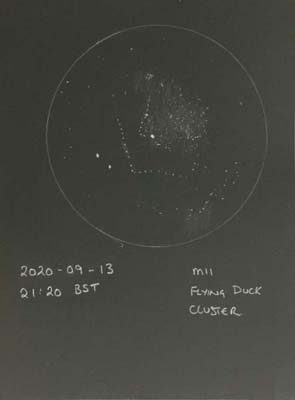 2020-09-13
21:20 BST
M11
FLYING DUCK
CLUSTER